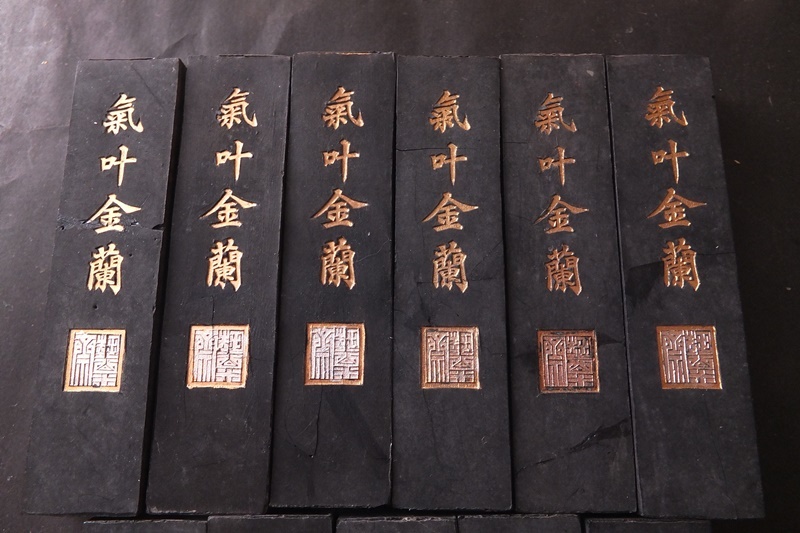 氣叶金蘭
氣叶金蘭
氣叶金蘭
氣叶金蘭
氣叶金蘭
氣叶金蘭